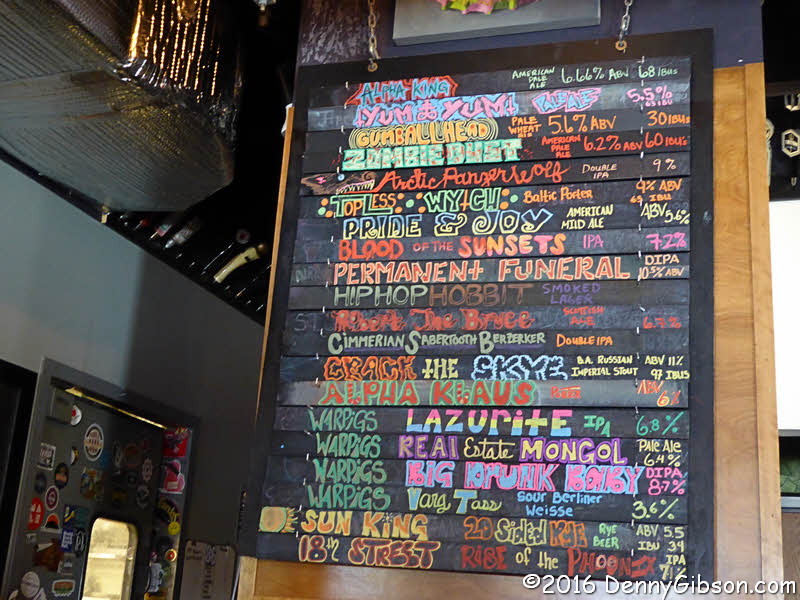 ALPHA KING AMERICAN PALE ALE 6.66% ABV 68 IBUs
YUM & YUM PALE ALE 5.5% 65 IBU
GUMBALLHEAD PALE WHEAT ALE 5.6% ABV 30 IBUs
ZOMBIE DUST AMERICAN PALE ALE 6.2% ABV 60 IBUs
ARCTIC PANZER WOLF DOUBLE IPA 9%
TOPLESS WYTCH Baltic Porter 9% ABV 65 IBU
PRIDE & JOY AMERICAN MILD ALE ABV 5.6%
BLOOD OF THE SUNSETS IPA 7.2%
PERMANENT FUNERAL DIPA 10.5% ABV
HIPHOP HOBBIT SMOKED LAGER
Robert The Bruce SCOTTISH ALE 6.7%
CIMMERIAN SABERTOOTH BERZERKER DOUBLE IPA
CRACK THE SKYE B.A. RUSSIAN IMPERIAL STOUT ABV 11% 97 IBUS
ALPHA KLAUS ABV 6%
WARPIGS LAZURITE IPA 6.8%
WARPIGS REAl Estate MONGOL Pale Ale 6.4%
WARPIGS BIG DRUNK BABY DIPA 8.7%
WARPIGS Varg Tass Sour Berliner Weisse 3.6%
SUN KING 20 Sided RYE RYE BEER ABV 5.5 IBU 34
18th STREET RISE of the PHOENIX IPA
©2016 DennyGibson.com